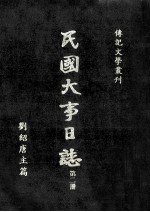 傳記文學叢刊
民國大事日誌
第一冊
劉紹唐主編